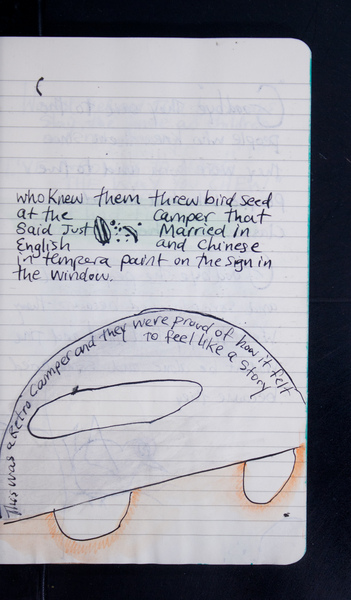 who knew them threw bird seed
at the camper that
said Just Married in
English and chinese
in tempera paint on the sign in
the window.
This was a Retro Camper and they were proud of how it felt
to feel like a story